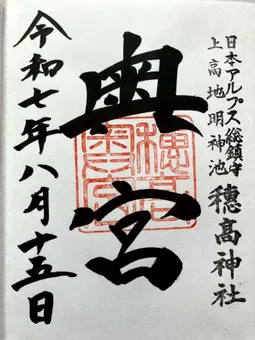 日本アルプス総鎮守
上高地明神池
穂高神社
奥宮
令和七年八月十五日